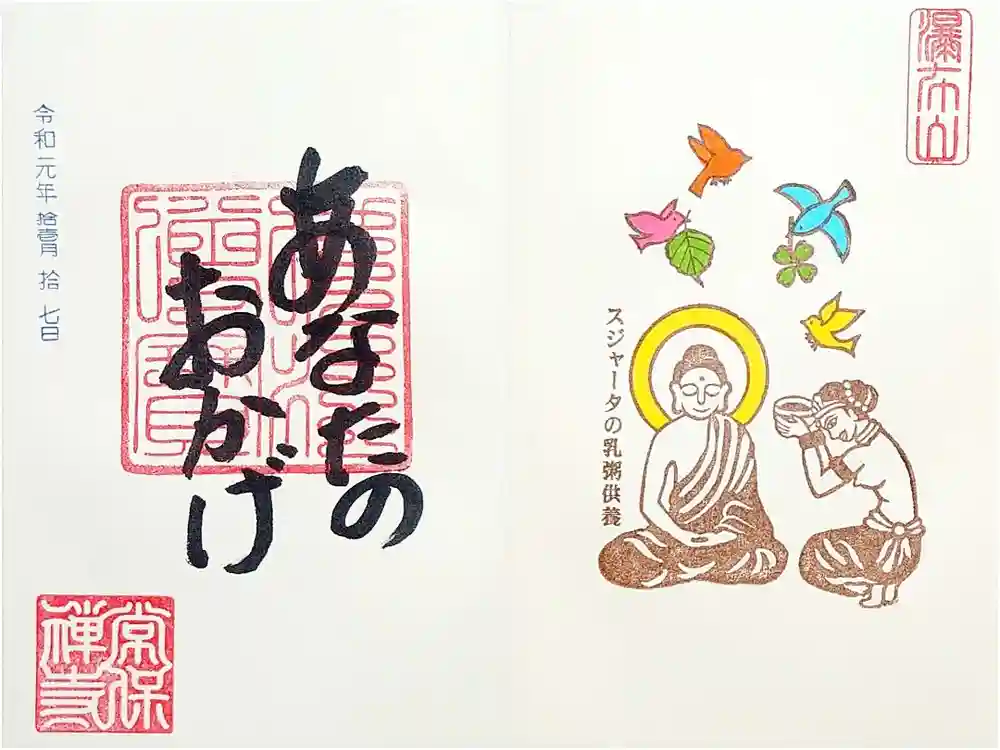 瀑布山
スジャータの乳粥供養
あなたの
おかげ
令和元年拾壹月拾七日
常保
禅寺